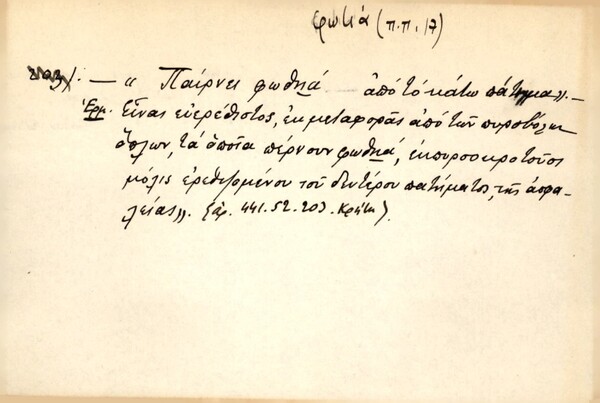 φωτιά (π.π. 17)
203/. — « Παίρνει φωθιά ἀπό τό κάτω πάτημα». —
Ἑρμ. Εἶναι εὐερέθιστος, ἐκ μεταφορᾶς ἀπό τῶν πυροβόλων
ὅπλων, τά ὁποῖα πέρνουν φωθιά, ἐκπυρσοκροτοῦσι
μόλις ἐρεθιζομένου τοῦ δευτέρου πατήματος, τῆς ἀσφα-
λείας». (ἀρ. 441. 52. 203. Κρήτη).